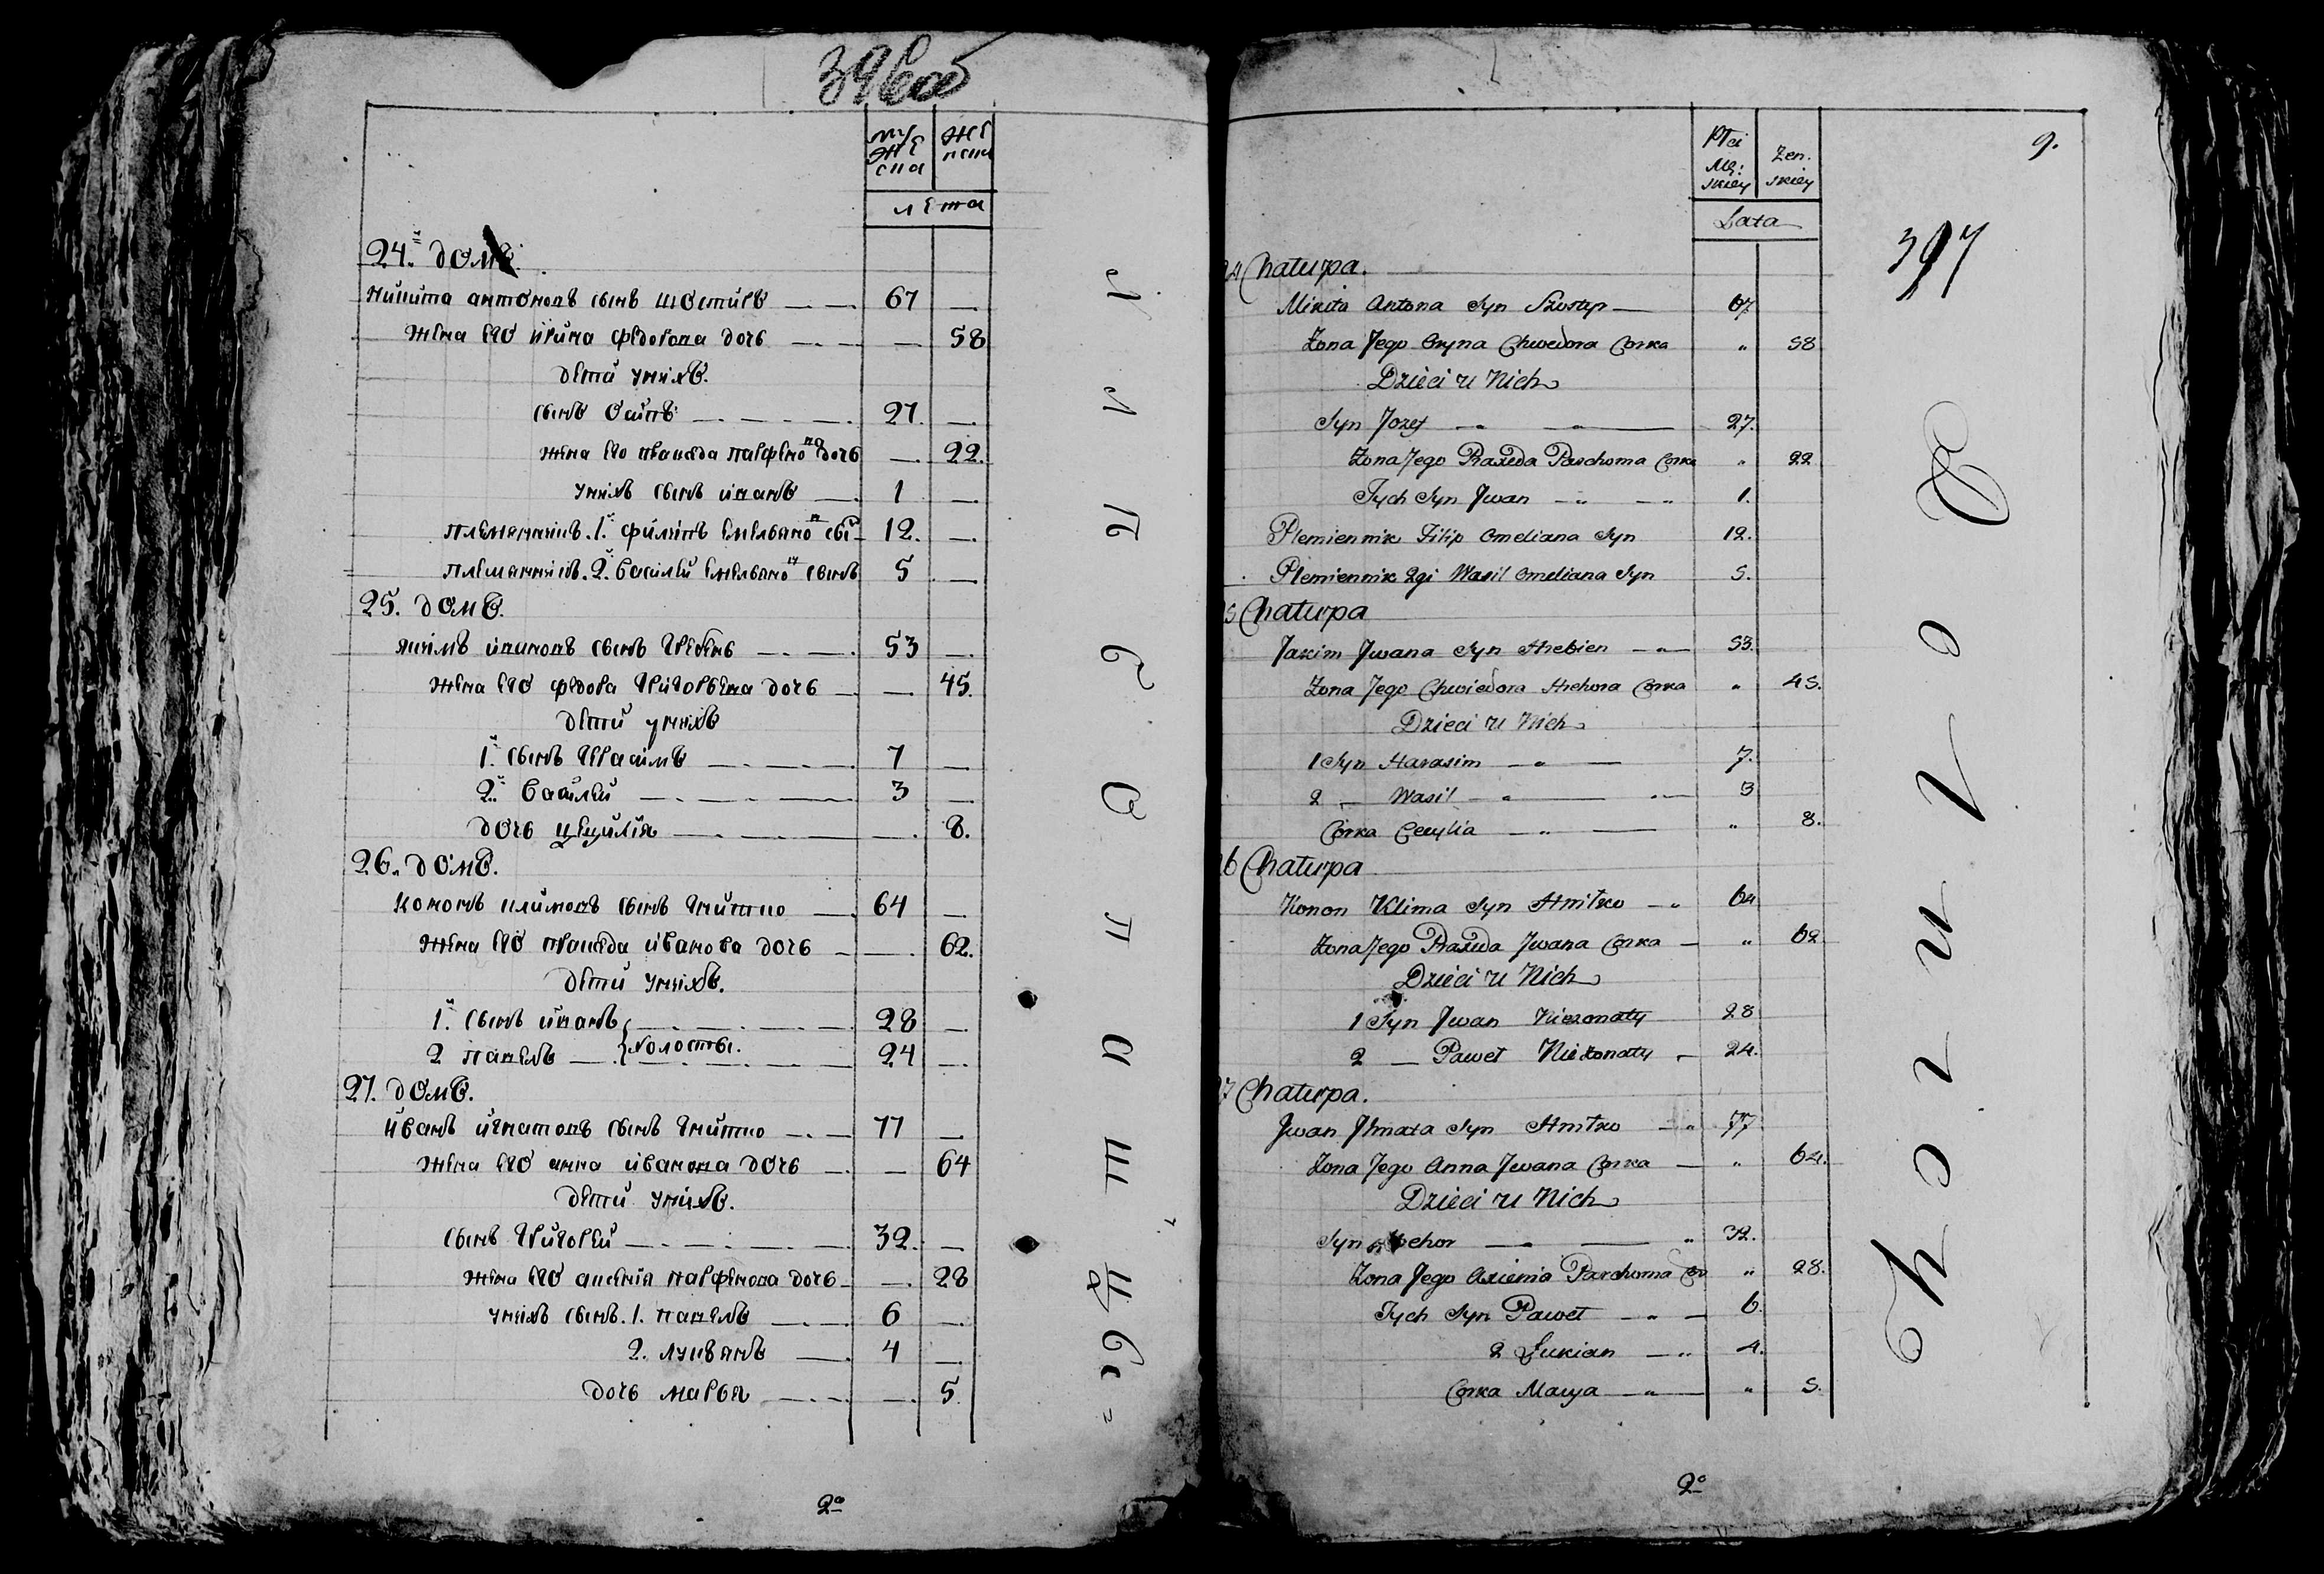 394 об
муже
ска
жен
ска
лета
24.й домъ.
Никита антоновъ сынъ шостикъ 67 —
жена его ирина федорова дочь — 58
дети унихъ.
сынъ осипъ 27 —
жена его праскеда парфено ва дочь — 22.
унихъ сынъ иванъ 1 —
племянникъ. 1.й филипъ емельяно в сы 12. —
племянникъ. 2.й василей емельяно в сынъ 5 —
25. домъ.
якимъ ивановъ сынъ гребень 53 —
жена его федора григорьева дочь — 45.
дети унихъ
1.й сынъ герасимъ 7 —
2.й василей 3 —
дочь цецилія — 8.
26. домъ.
кононъ климовъ сынъ гнитко 64 —
жена его праскеда иванова дочь — 62.
дети унихъ.
1.й сынъ иванъ 28 —
холосты.
2 павелъ 24 —
27. домъ.
иванъ игнатовъ сынъ гнитко 77 —
жена его анна иванова дочь — 64
дети унихъ.
сынъ григорей 32. —
жена его аксенія парфенова дочь — 28
унихъ сынъ. 1. павелъ 6 —
2. лукьянъ 4 —
дочь марья — 5.
2а
Płci
Mę:
skiey
Żen.
skiey
Lata
9.
397
24 Chałupa.
Mikita Antona Syn Szostyp 67.
Żona Jego Oryna Chwedora Corka " 58
Dzieci u Nich
Syn Jozef 27.
Żona Jego Praxeda Parchoma Corka " 22
Tych Syn Jwan 1.
Plemiennik Filip Omeliana Syn 12.
Plemiennik 2gi Wasil Omeliana Syn 5.
25 Chałupa
Jakim Jwana Syn Hrebien 53.
Żona Jego Chwiedora Hrehora Corka " 45.
Dzieci u Nich
1 Syn Harasim 7.
2 — Wasil 3
Corka Cecylia " 8.
26 Chałupa
Konon Klima Syn Hnitko 64
Żona Jego Praxeda Jwana Corka " 62
Dzieci u Nich
1 Syn Jwan Nieżonaty 28
2 — Paweł Nieżonaty 24.
27 Chałupa.
Jwan Jhnata Syn Hnitko 77
Żona Jego Anna Jwana Corka " 64.
Dzieci u Nich
Syn Hrehor " 32.
Żona Jego Axienia Parchoma Cor " 28.
Tych Syn Paweł 6.
2 Łukian 4.
Corka Marya " 5.
2o